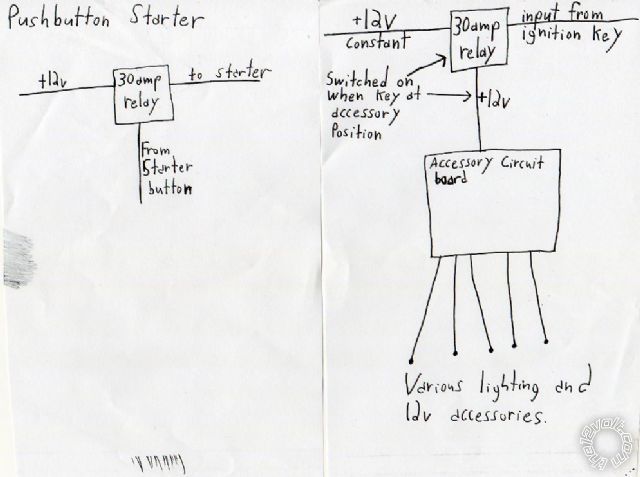 Pushbutton Starter
+12v
30amp
relay
to starter
From
Starter
button
+12v
Constant
30amp
relay
input from
ignition key
Switched on
when key at
accessory
Position
+12v
Accessory Circuit
board
Various lighting and
12v accessories.
the12volt.com